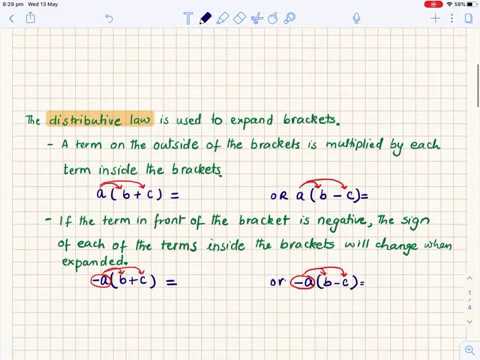 8:29 pm Wed 13 May
56%
The distributive law is used to expand brackets.
- A term on the outside of the brackets is multiplied by each
term inside the brackets.
a(b+c) = OR a(b-c)=
- If the term in front of the bracket is negative, The sign
of each of the terms inside the brackets will change when
expanded.
-a(b+c) = or -a(b-c)=